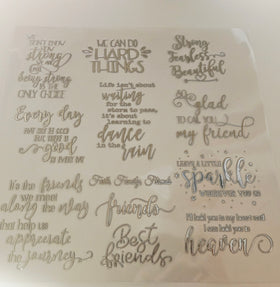 you
DON'T KNOW
how
strong
you are
until
being strong
IS THE
ONLY CHOICE
Every day
MAY NOT BE GOOD
BUT THERE IS
good
IN EVERY DAY
It's the friends
we meet
along the way
that help us
appreciate
the journey
WE CAN DO
HARD
THINGS
Life isn't about
waiting
for the
storm to pass,
it's about
learning to
dance
in the
rain
Faith Family Friends
friends
Best
friends
Strong
Fearless
Beautiful
SO
glad
TO CALL YOU
my friend
LEAVE A LITTLE
sparkle
WHEREVER YOU GO
I'll hold you in my heart until
I can hold you in
heaven